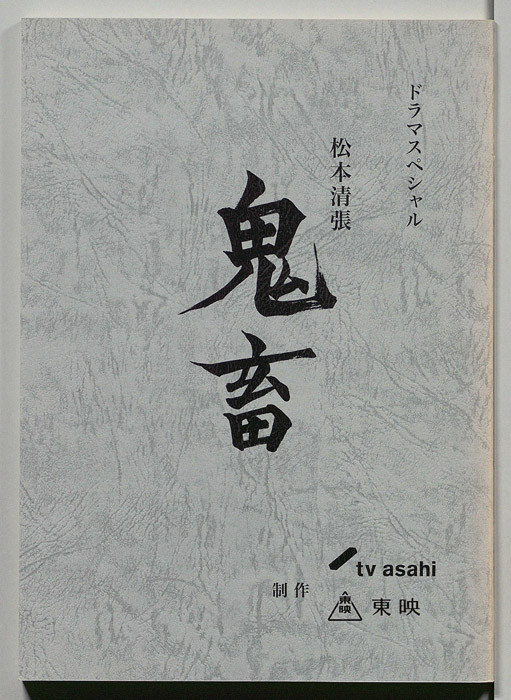 ドラマスペシャル
松本清張
鬼畜
制作
tv asahi
東映
東映